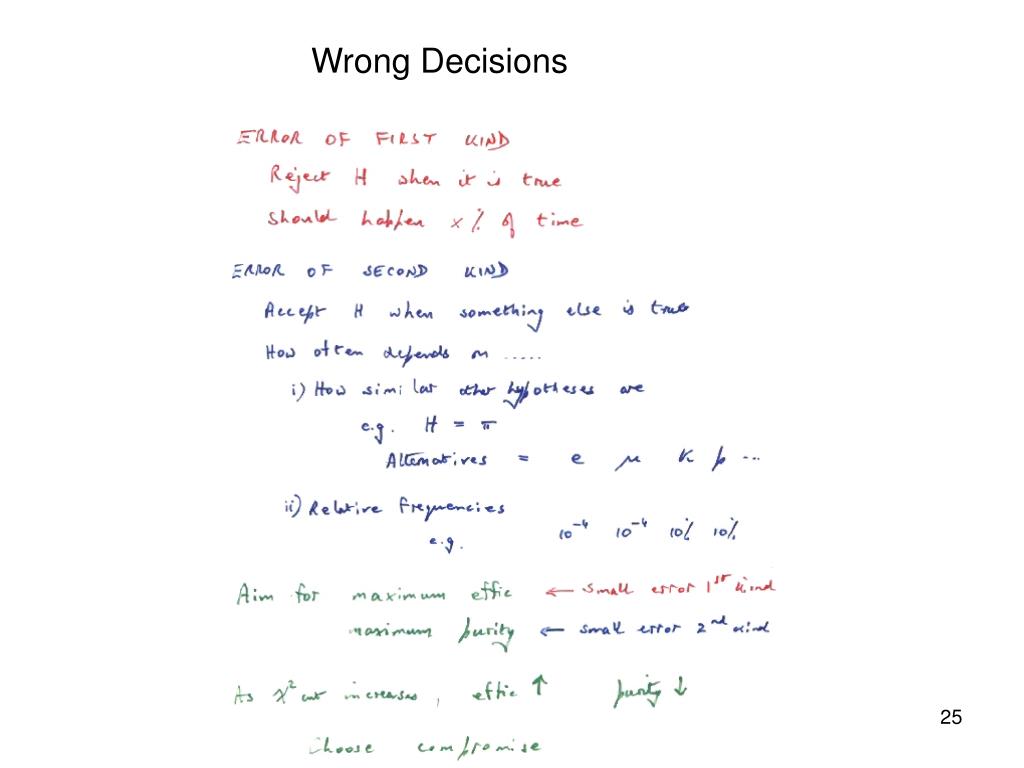 Wrong Decisions
ERROR OF FIRST KIND
Reject H when it is true
Should happen x % of time
ERROR OF SECOND KIND
Accept H when something else is true
How often depends on .....
i) How similar other hypotheses are
e.g. H = π
Alternatives = e μ K p ...
ii) Relative frequencies
10⁻⁴ 10⁻⁴ 10% 10%
e.g.
Aim for maximum effic ← small error 1ˢᵗ kind
maximum purity ← small error 2ⁿᵈ kind
As χ² cut increases, effic ↑ purity ↓
Choose compromise
25